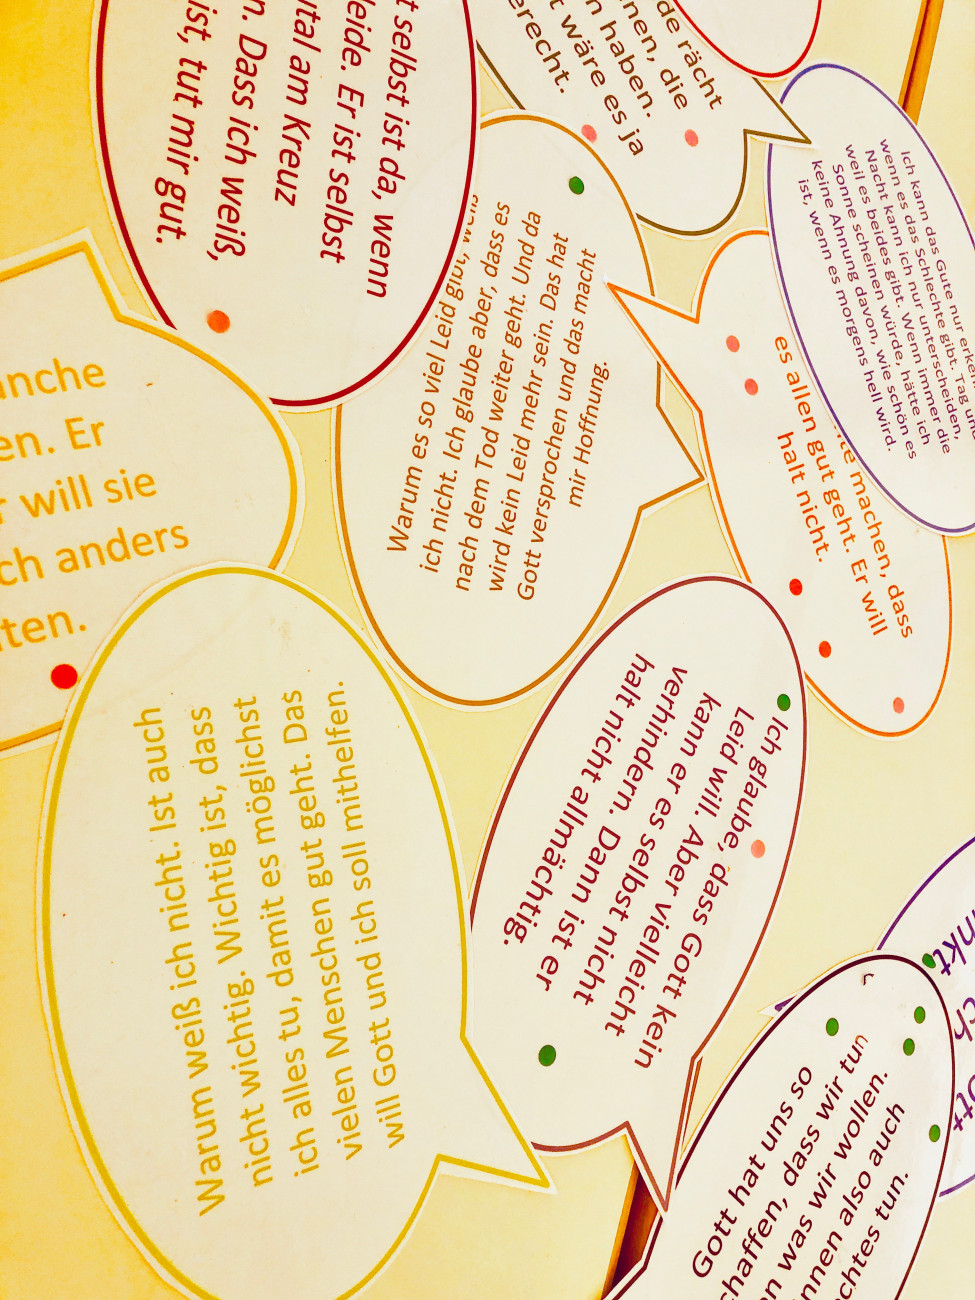 t selbst ist da, wenn
leide. Er ist selbst
tal am Kreuz
n. Dass ich weiß,
ist, tut mir gut.
de rächt
nen, die
n haben.
t wäre es ja
erecht.
Ich kann das Gute nur erken
wenn es das Schlechte gibt. Tag und
Nacht kann ich nur unterscheiden,
weil es beides gibt. Wenn immer die
Sonne scheinen würde, hätte ich
keine Ahnung davon, wie schön es
ist, wenn es morgens hell wird.
Warum es so viel Leid gibt, weiß
ich nicht. Ich glaube aber, dass es
nach dem Tod weiter geht. Und da
wird kein Leid mehr sein. Das hat
Gott versprochen und das macht
mir Hoffnung.
te machen, dass
es allen gut geht. Er will
halt nicht.
nche
en. Er
r will sie
ch anders
ten.
Warum weiß ich nicht. Ist auch
nicht wichtig. Wichtig ist, dass
ich alles tu, damit es möglichst
vielen Menschen gut geht. Das
will Gott und ich soll mithelfen.
Ich glaube, dass Gott kein
Leid will. Aber vielleicht
kann er es selbst nicht
verhindern. Dann ist er
halt nicht allmächtig.
nkt
ch
Gott hat uns so
chaffen, dass wir tun
en was wir wollen.
nnen also auch
chtes tun.